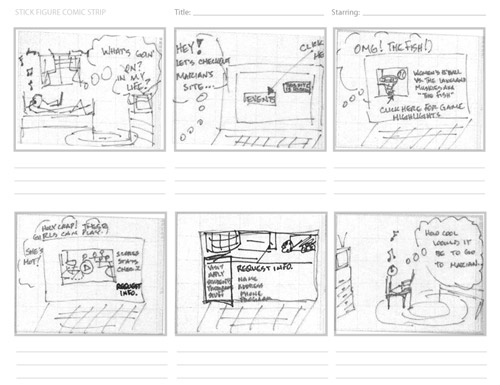 STICK FIGURE COMIC STRIP
Title:
Starring:
WHAT'S GOIN'
ON?
IN MY
LIFE.
HEY!
LET'S CHECKOUT
MARIAN'S
SITE...
CLICK
ME
EVENTS
OMG! THE FISH!
WOMEN'S BBALL
VS. THE LAKELAND
MUSKIES AKA
"THE FISH"
CLICK HERE FOR GAME
HIGHLIGHTS
HOLY CRAP! THESE
GIRLS CAN PLAY!
SHE'S
HOT!
STATS
REQUEST
INFO.
VISIT
APPLY
REQUEST INFO.
NAME
ADDRESS
PHONE
PROGRAM
HOW COOL
WOULD IT
BE TO GO
TO MARIAN.